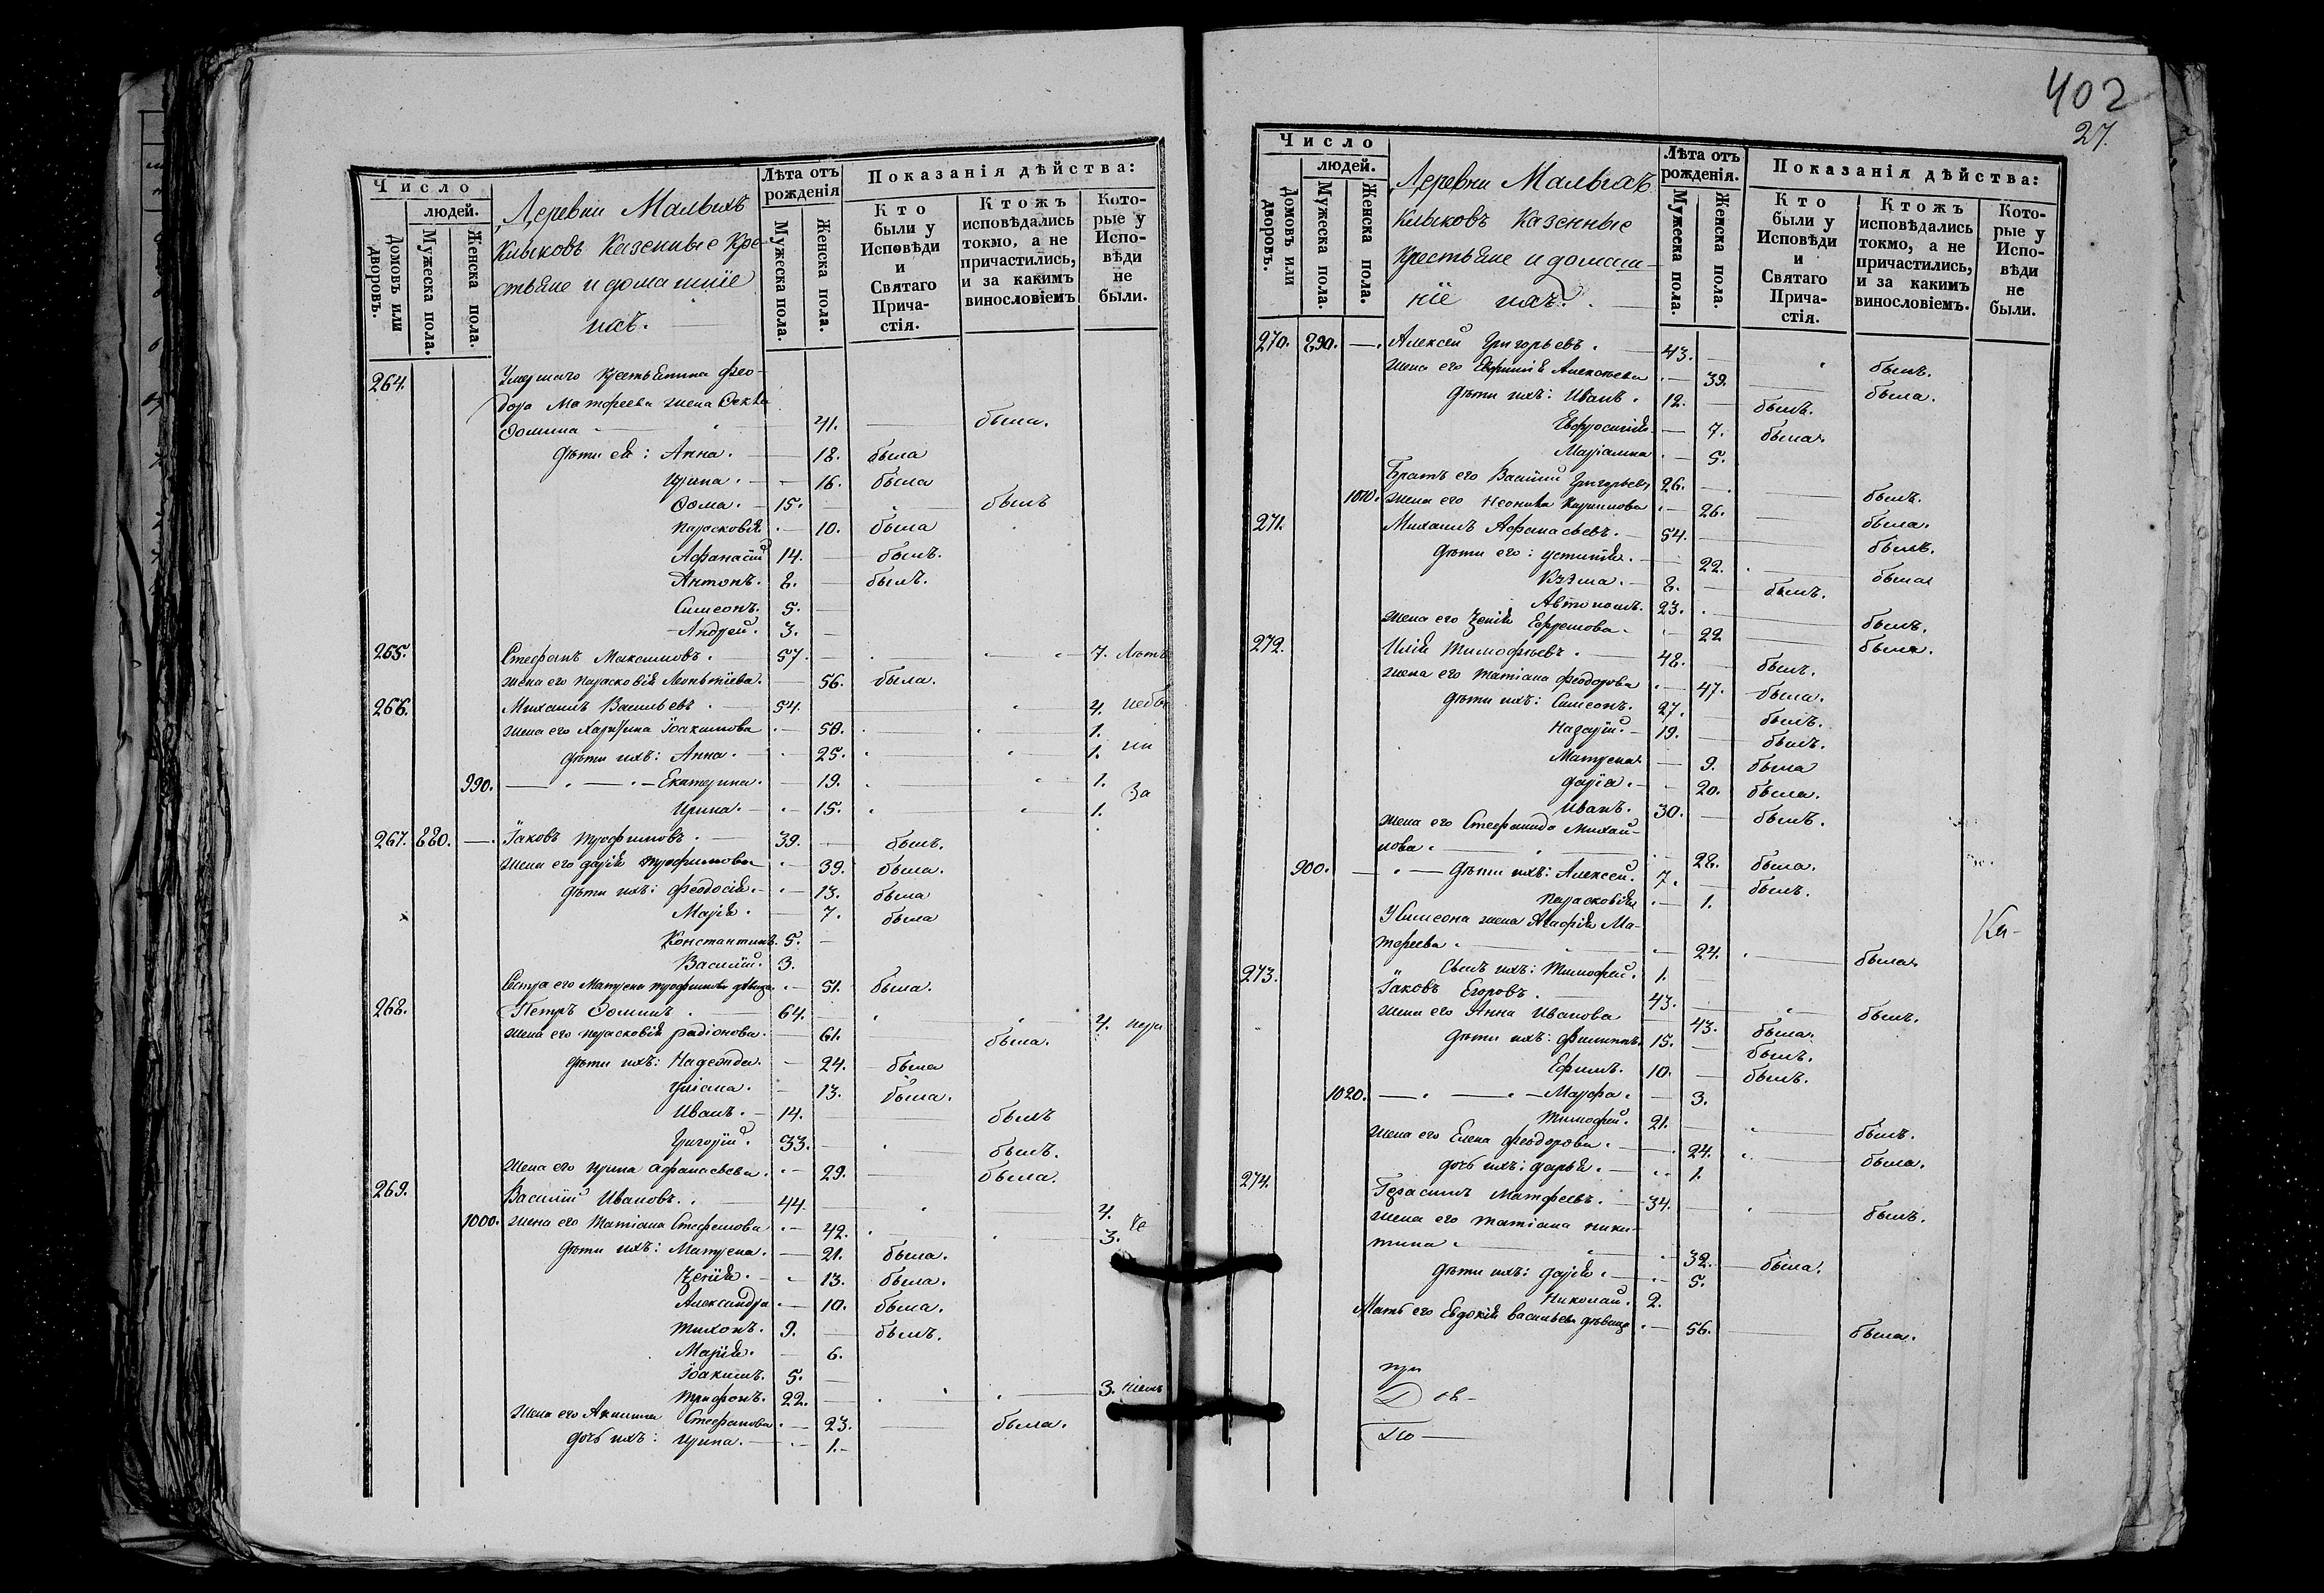 Число
людей.
Домовъ или дворовъ.
Мужеска пола.
Женска пола.
Деревни Малыхъ
Клыковъ Казенные Кре-
стьяне и домашніе
ихъ.
Лѣта отъ рожденія
Мужеска пола.
Женска пола.
Показанія дѣйства:
Кто были у Исповѣди и Святаго Прича-стія.
Ктожъ исповѣдались токмо, а не причастились, и за какимъ винословіемъ
Кото-рые у Испо-вѣди не были.
264. Умершаго крестьянина Фео-
дора Матфеева жена Ѳекла
Ѳомина 41. была.
дѣти ея: Анна. 18. была
Ирина. 16. была
Ѳома. 15. былъ
Парасковія. 10. была
Афанасій 14. былъ.
Антонъ. 8. былъ.
Симеонъ. 5.
Андрей. 3.
265. Стефанъ Максимовъ. 57. 7. Лѣтъ
жена его Парасковія Леонтіева. 56. была.
266. Михаилъ Васильевъ 54. 4. небы
жена его Харитина Іоакимова 50. 1.
дѣти ихъ: Анна. 25. 1. ли
990. Екатерина. 19. 1.
Ирина. 15. 1. За
267. 880. Іаковъ Трофимовъ 39. былъ.
жена его Дарія Трофимова 39. была.
дѣти ихъ: Феодосія. 13. была
Марія. 7. была
Константинъ. 5.
Василій. 3.
Сестра его Матрена Трофимова дѣвица. 51. была.
268. Петръ Ѳоминъ 64. 4. нера
жена его Парасковія Радіонова. 61. была.
дѣти ихъ: Надежда. 24. была
Уліана. 13. была.
Иванъ. 14. былъ
Григорій. 33. былъ.
жена его Ирина Афанасьева. 29. была.
269. Василій Ивановъ. 44. 4.
1000. жена его Татіана Стефанова 42. 3. че
дѣти ихъ: Матрена. 21. была.
Ксенія. 13. была.
Александра 10. была.
Тихонъ. 9. былъ.
Марія. 6.
Іоакимъ. 5.
Трифонъ. 22. 3. ніемъ
Жена его Акилина Стефанова 23. была.
дочь ихъ: Ирина. 1.
402
27.
Число
людей.
Домовъ или дворовъ.
Мужеска пола.
Женска пола.
Деревни Малыхъ
Клыковъ Казенные
Крестьяне и домаш-
ніе ихъ.
Лѣта отъ рожденія.
Мужеска пола.
Женска пола.
Показанія дѣйства:
Кто были у Исповѣди и Святаго Прича-стія.
Ктожъ исповѣдались токмо, а не причастились, и за какимъ винословіемъ.
Кото-рые у Испо-вѣди не были.
270. 890. Алексей Григорьевъ. 43. былъ.
жена его Евфимія Алексеева 39. была.
дѣти ихъ: Иванъ. 12. былъ.
Евфросинія 7. была
Маріамна 5.
Братъ его Василій Григорьевъ 26. былъ.
1010. жена его Неонила Карпикова 26. была.
271. Михаилъ Афанасьевъ. 54. былъ.
дѣти его: Устинія. 22. была
Козма. 8. былъ.
Автономъ. 23. былъ.
жена его Ксенія Ефремова. 22 была.
272. Илія Тимофеевъ. 48. былъ.
жена его Татіана Феодорова 47. была.
дѣти ихъ: Симеонъ. 27. былъ.
Назарій. 19. былъ.
Матрена 9. была
Дарія. 20. была.
Иванъ. 30. былъ.
жена его Стефанида Михай-
лова. 28. была.
900. дѣти ихъ: Алексей. 7. былъ.
Парасковія 1.
У Симеона жена Агафія Ма-
тфеева 24. была
Сынъ ихъ: Тимофей. 1.
273. Іаковъ Егоровъ. 43. былъ.
жена его Анна Иванова 43. была.
дѣти ихъ: Филиппъ. 15. былъ.
Ефимъ. 10. былъ.
1020. Марфа. 3.
Тимофей. 21. былъ.
жена его Елена Феодорова. 24. была.
дочь ихъ: Дарья. 1.
274. Герасимъ Матфеевъ. 34. былъ.
жена его Татіана Ники-
тина 32. была.
дѣти ихъ: Дарія 5.
Николай. 2.
Мать его Евдокія Васильева дѣвица 56. была.
Ка-
при
По